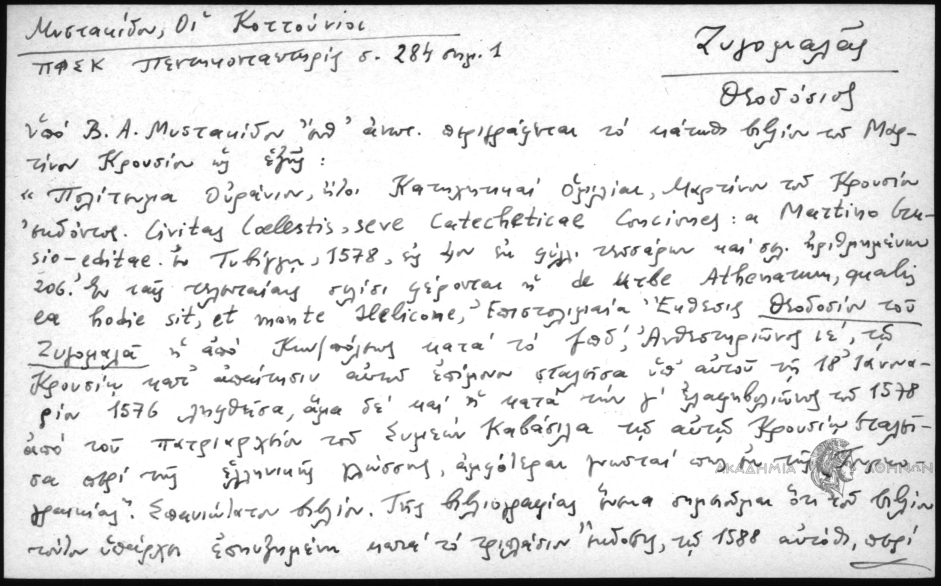 Μυστακίδου, Οἱ Κοττούνιοι
ΠΦΣΚ Πεντηκονταετηρίς σ. 284 σημ. 1
Ζυγομαλᾶς
Θεοδόσιος
ὑπό Β. Α. Μυστακίδου ἀνωτ. περιγράφεται τό κάτωθι βιβλίον τοῦ Μαρ-
τίνου Κρουσίου ὡς ἑξῆς :
« Πολίτευμα Οὐράνιον, ἤτοι Κατηχητικαί Ὁμιλίαι, Μαρτίνου τοῦ Κρουσίου
ἐκδόντος. Civitas Coelestis, seve Catecheticae Conciones : a Martino Cru-
sio-editae. Ἐν Τυβίγγῃ, 1578, εἰς 4ον ἐκ φύλλ. τεσσάρων καί σελ. ἠριθμημένων
206. Ἐν ταῖς τελευταίαις σελίσι φέρονται ἡ de Urbe Athenarum, qualis
ea hodie sit, et monte Helicone, Ἐπιστολιμαία Ἔκθεσις Θεοδοσίου τοῦ
Ζυγομαλᾶ ἡ ἀπό Κων/πόλεως κατά τό Ἀνθεστηριῶνος ιε΄, τῷ
Κρουσίῳ κατ' ἀπαίτησιν αὐτοῦ ἐπίμονον σταλεῖσα ὑπ' αὐτοῦ τῇ 18 Ἰανουα-
ρίου 1576 ληφθεῖσα, ἅμα δέ καί ἡ κατά τήν γ΄ ἐλαφηβολιῶνος τοῦ 1578
ἀπό τοῦ πατριαρχείου τοῦ Συμεών Καβάσιλα τῷ αὐτῷ Κρουσίῳ σταλεῖ-
σα περί τῆς ἑλληνικῆς γλώσσης, ἀμφότεραι γνωσταί ἐκ τῆς
γραικίας. Σπανιώτατον βιβλίον. Τῆς βιβλιογραφίας ἕνεκα σημειοῦμαι ὅτι τοῦ βιβλίου
τούτου ὑπάρχει ἐπηυξημένη κατά τό τριπλάσιον ἔκδοσις, τῷ 1588 αὐτόθι, περί
ΑΚΑΔΗΜΙΑ ΑΘΗΝΩΝ